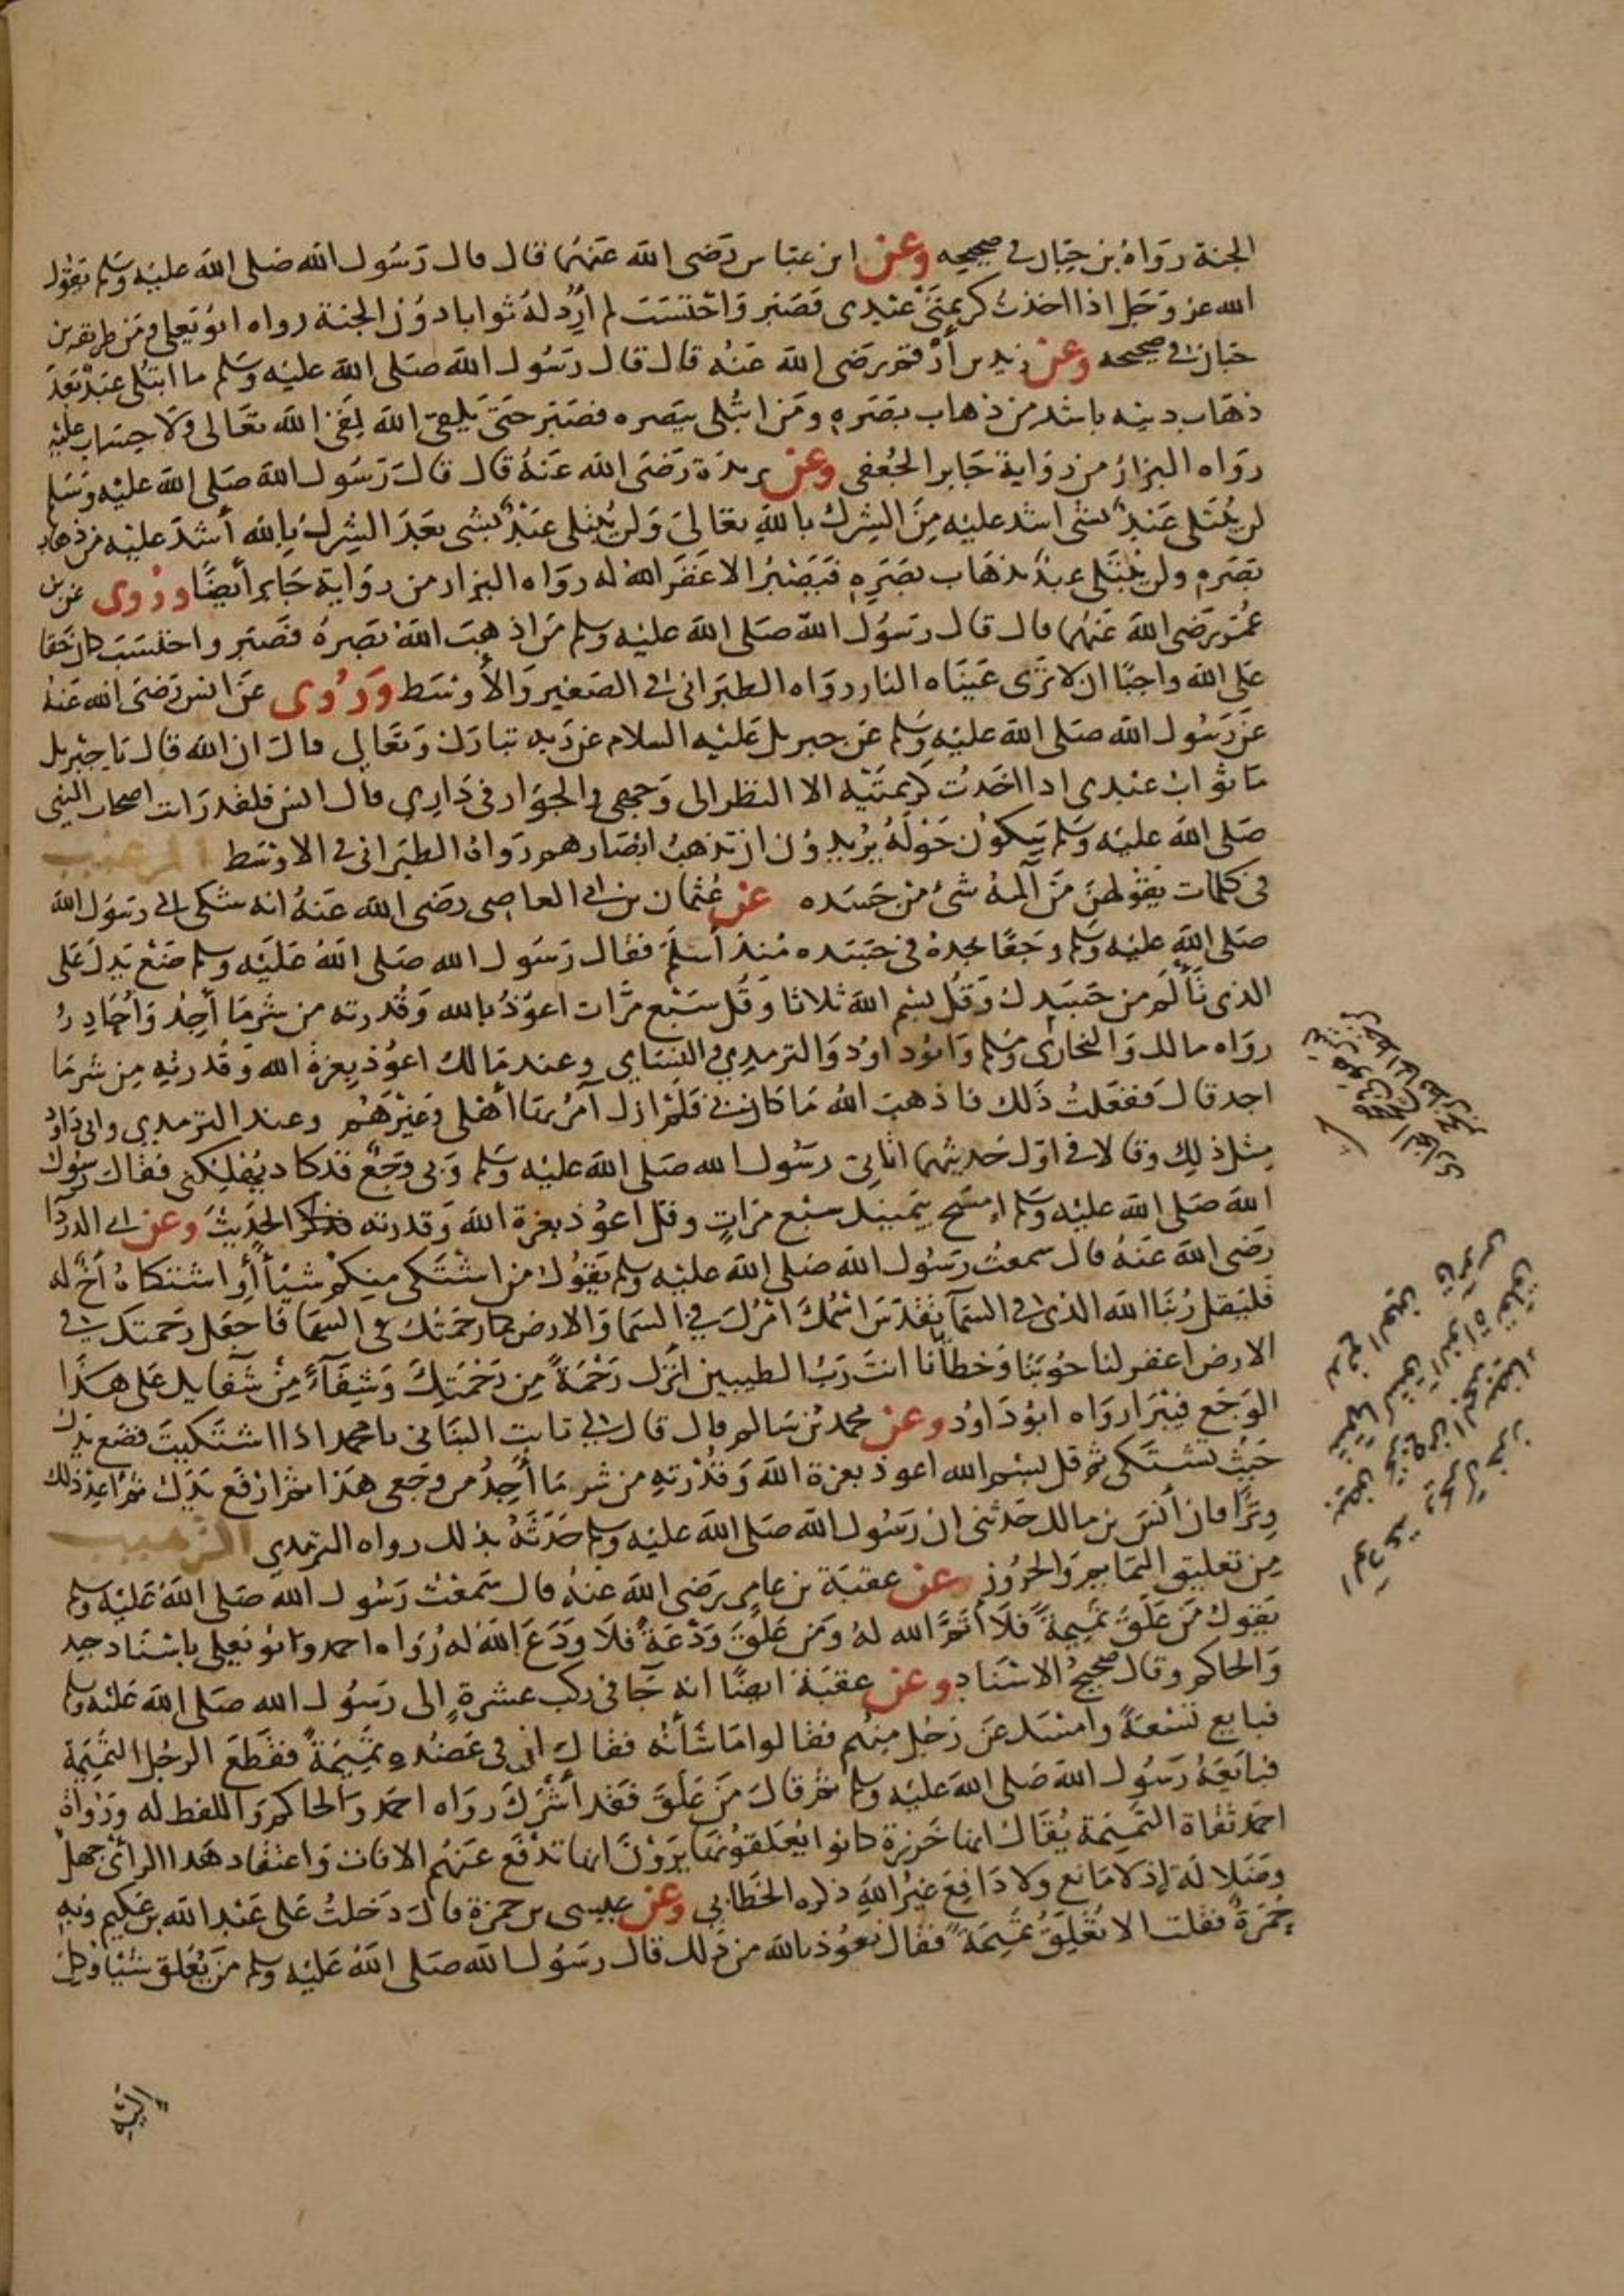 الجنة رواه بن حبان في صحيحه وعن ابن عباس رضي الله عنهما قال قال رسول الله صلى الله عليه وسلم يقول
الله عز وجل اذا اخذت كريمتي عبدي فصبر واحتسب لم أرد له ثوابا دون الجنة رواه ابو يعلى ومن طريقه بن
حبان في صحيحه وعن زيد بن أرقم رضي الله عنه قال قال رسول الله صلى الله عليه وسلم ما ابتلي عبد بعد
ذهاب دينه باشد من ذهاب بصره ومن ابتلي ببصره فصبر حتى يلقى الله لقي الله تعالى ولا حساب عليه
رواه البزار من رواية جابر الجعفي وعن بريدة رضي الله عنه قال قال رسول الله صلى الله عليه وسلم
لن يبتلى عبد بشي اشد عليه من الشرك بالله تعالى ولن يبتلى عبد بشي بعد الشرك بالله أشد عليه من ذهاب
بصره ولن يبتلى عبد بذهاب بصره فيصبر الا غفر الله له رواه البزار من رواية جابر أيضا وروى عن بن
عمر رضي الله عنهما قال قال رسول الله صلى الله عليه وسلم من اذهب الله بصره فصبر واحتسب كان حقا
على الله واجبا ان لا ترى عيناه النار رواه الطبراني في الصغير والأوسط وروى عن انس رضي الله عنه
عن رسول الله صلى الله عليه وسلم عن جبريل عليه السلام عن ربه تبارك وتعالى قال ان الله قال يا جبريل
ما ثواب عبدي اذا اخذت كريمتيه الا النظر الى وجهي والجوار في داري قال انس فلقد رات اصحاب النبي
صلى الله عليه وسلم يبكون حوله يريدون ان تذهب ابصارهم رواه الطبراني في الاوسط الترغيب
في كلمات يقولهن من آلمه شئ من جسده عن عثمان بن ابي العاصي رضي الله عنه انه شكى الى رسول الله
صلى الله عليه وسلم وجعا يجده في جسده منذ أسلم فقال رسول الله صلى الله عليه وسلم ضع يدك على
الذي تألم من جسدك وقل بسم الله ثلاثا وقل سبع مرات اعوذ بالله وقدرته من شر ما أجد وأحاذر
رواه مالك والبخاري ومسلم وابو داود والترمدي والنساي وعند مالك اعوذ بعزة الله وقدرته من شر ما
اجد قال ففعلت ذلك فاذهب الله ما كان بي فلم ازل آمر بها أهلي وغيرهم وعند الترمدي وابي داود
مثل ذلك وقالا في اول حديثهما اتاني رسول الله صلى الله عليه وسلم وبي وجع قد كاد يهلكني فقال رسول
الله صلى الله عليه وسلم امسح بيمينك سبع مرات وقل اعوذ بعزة الله وقدرته فذكر الحديث وعن ابي الدردا
رضي الله عنه قال سمعت رسول الله صلى الله عليه وسلم يقول من اشتكى منكم شيئا أو اشتكاه أخ له
فليقل ربنا الله الذي في السمآ تقدس اسمك امرك في السما والارض كما رحمتك في السما فاجعل رحمتك في
الارض اغفر لنا حوبنا وخطايانا انت رب الطيبين انزل رحمة من رحمتك وشفآء من شفايك على هذا
الوجع فيبرا رواه ابو داود وعن محمد بن سالم قال قال لي ثابت البناني يا محمد اذا اشتكيت فضع يدك
حيث تشتكي ثم قل بسم الله اعوذ بعزة الله وقدرته من شر ما أجد من وجعي هذا ثم ارفع يدك ثم اعد ذلك
وترا فان أنس بن مالك حدثني ان رسول الله صلى الله عليه وسلم حدثه بذلك رواه الترمدي الترهيب
من تعليق التمايم والحروز عن عقبة بن عامر رضي الله عنه قال سمعت رسول الله صلى الله عليه وسلم
يقول من علق تميمة فلا أتم الله له ومن علق ودعة فلا ودع الله له رواه احمد وابو يعلى باسناد جيد
والحاكم وقال صحيح الاسناد وعن عقبة ايضا انه جا في ركب عشرة الى رسول الله صلى الله عليه وسلم
فبايع تسعة وامسك عن رجل منهم فقالوا ما شأنه فقال ان في عضده تميمة فقطع الرجل التميمة
فبايعه رسول الله صلى الله عليه وسلم ثم قال من علق فقد أشرك رواه احمد والحاكم واللفظ له ورواة
احمد ثقاة التميمة يقال انها خرزة كانوا يعلقونها يرون انها تدفع عنهم الافات واعتقاد هذا الرأي جهل
وضلالة إذ لا مانع ولا دافع غير الله ذكره الخطابي وعن عيسى بن حمزة قال دخلت على عبد الله بن عكيم وبه
حمرة فقلت الا تعلق تميمة فقال نعوذ بالله من ذلك قال رسول الله صلى الله عليه وسلم من يعلق شيئا وكل
اليه